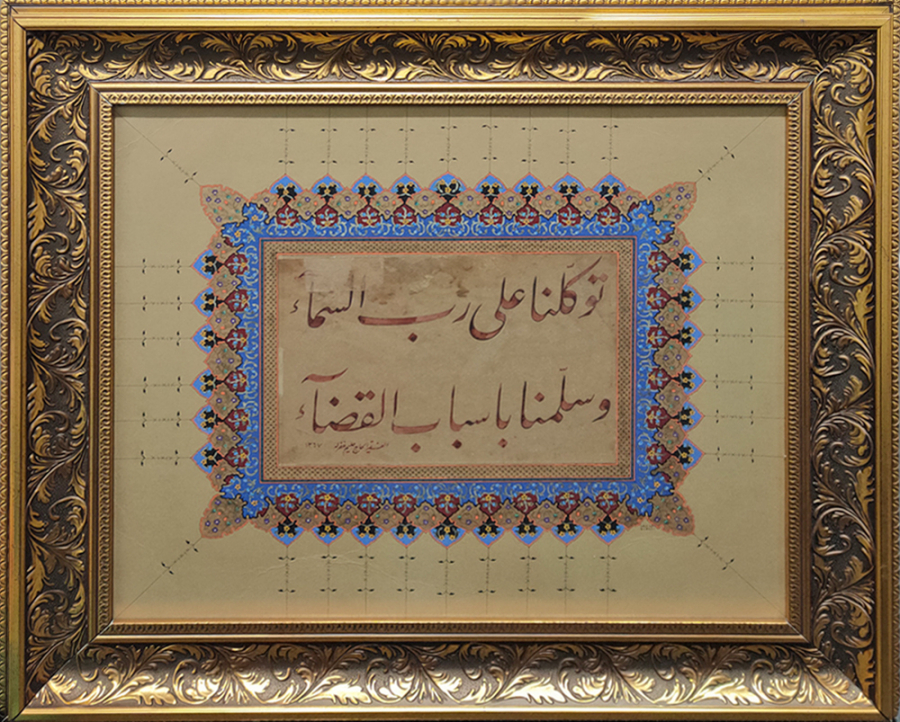 توكّلنا على رب السماء
وسلّمنا باسباب القضآء
١٣٦٧